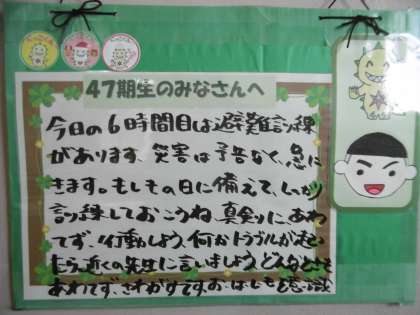 47期生のみなさんへ
今日の6時間目は避難訓練
があります。災害は予告なく、急に
きます。もしもの日に備えて、しっかり
訓練しておこうね。真剣に、あわ
てず、行動しよう。何かトラブルが起い
たら、近くの先生に言いましょう。どんなときも
あわてず、さわがずです。お・は・しもを意識